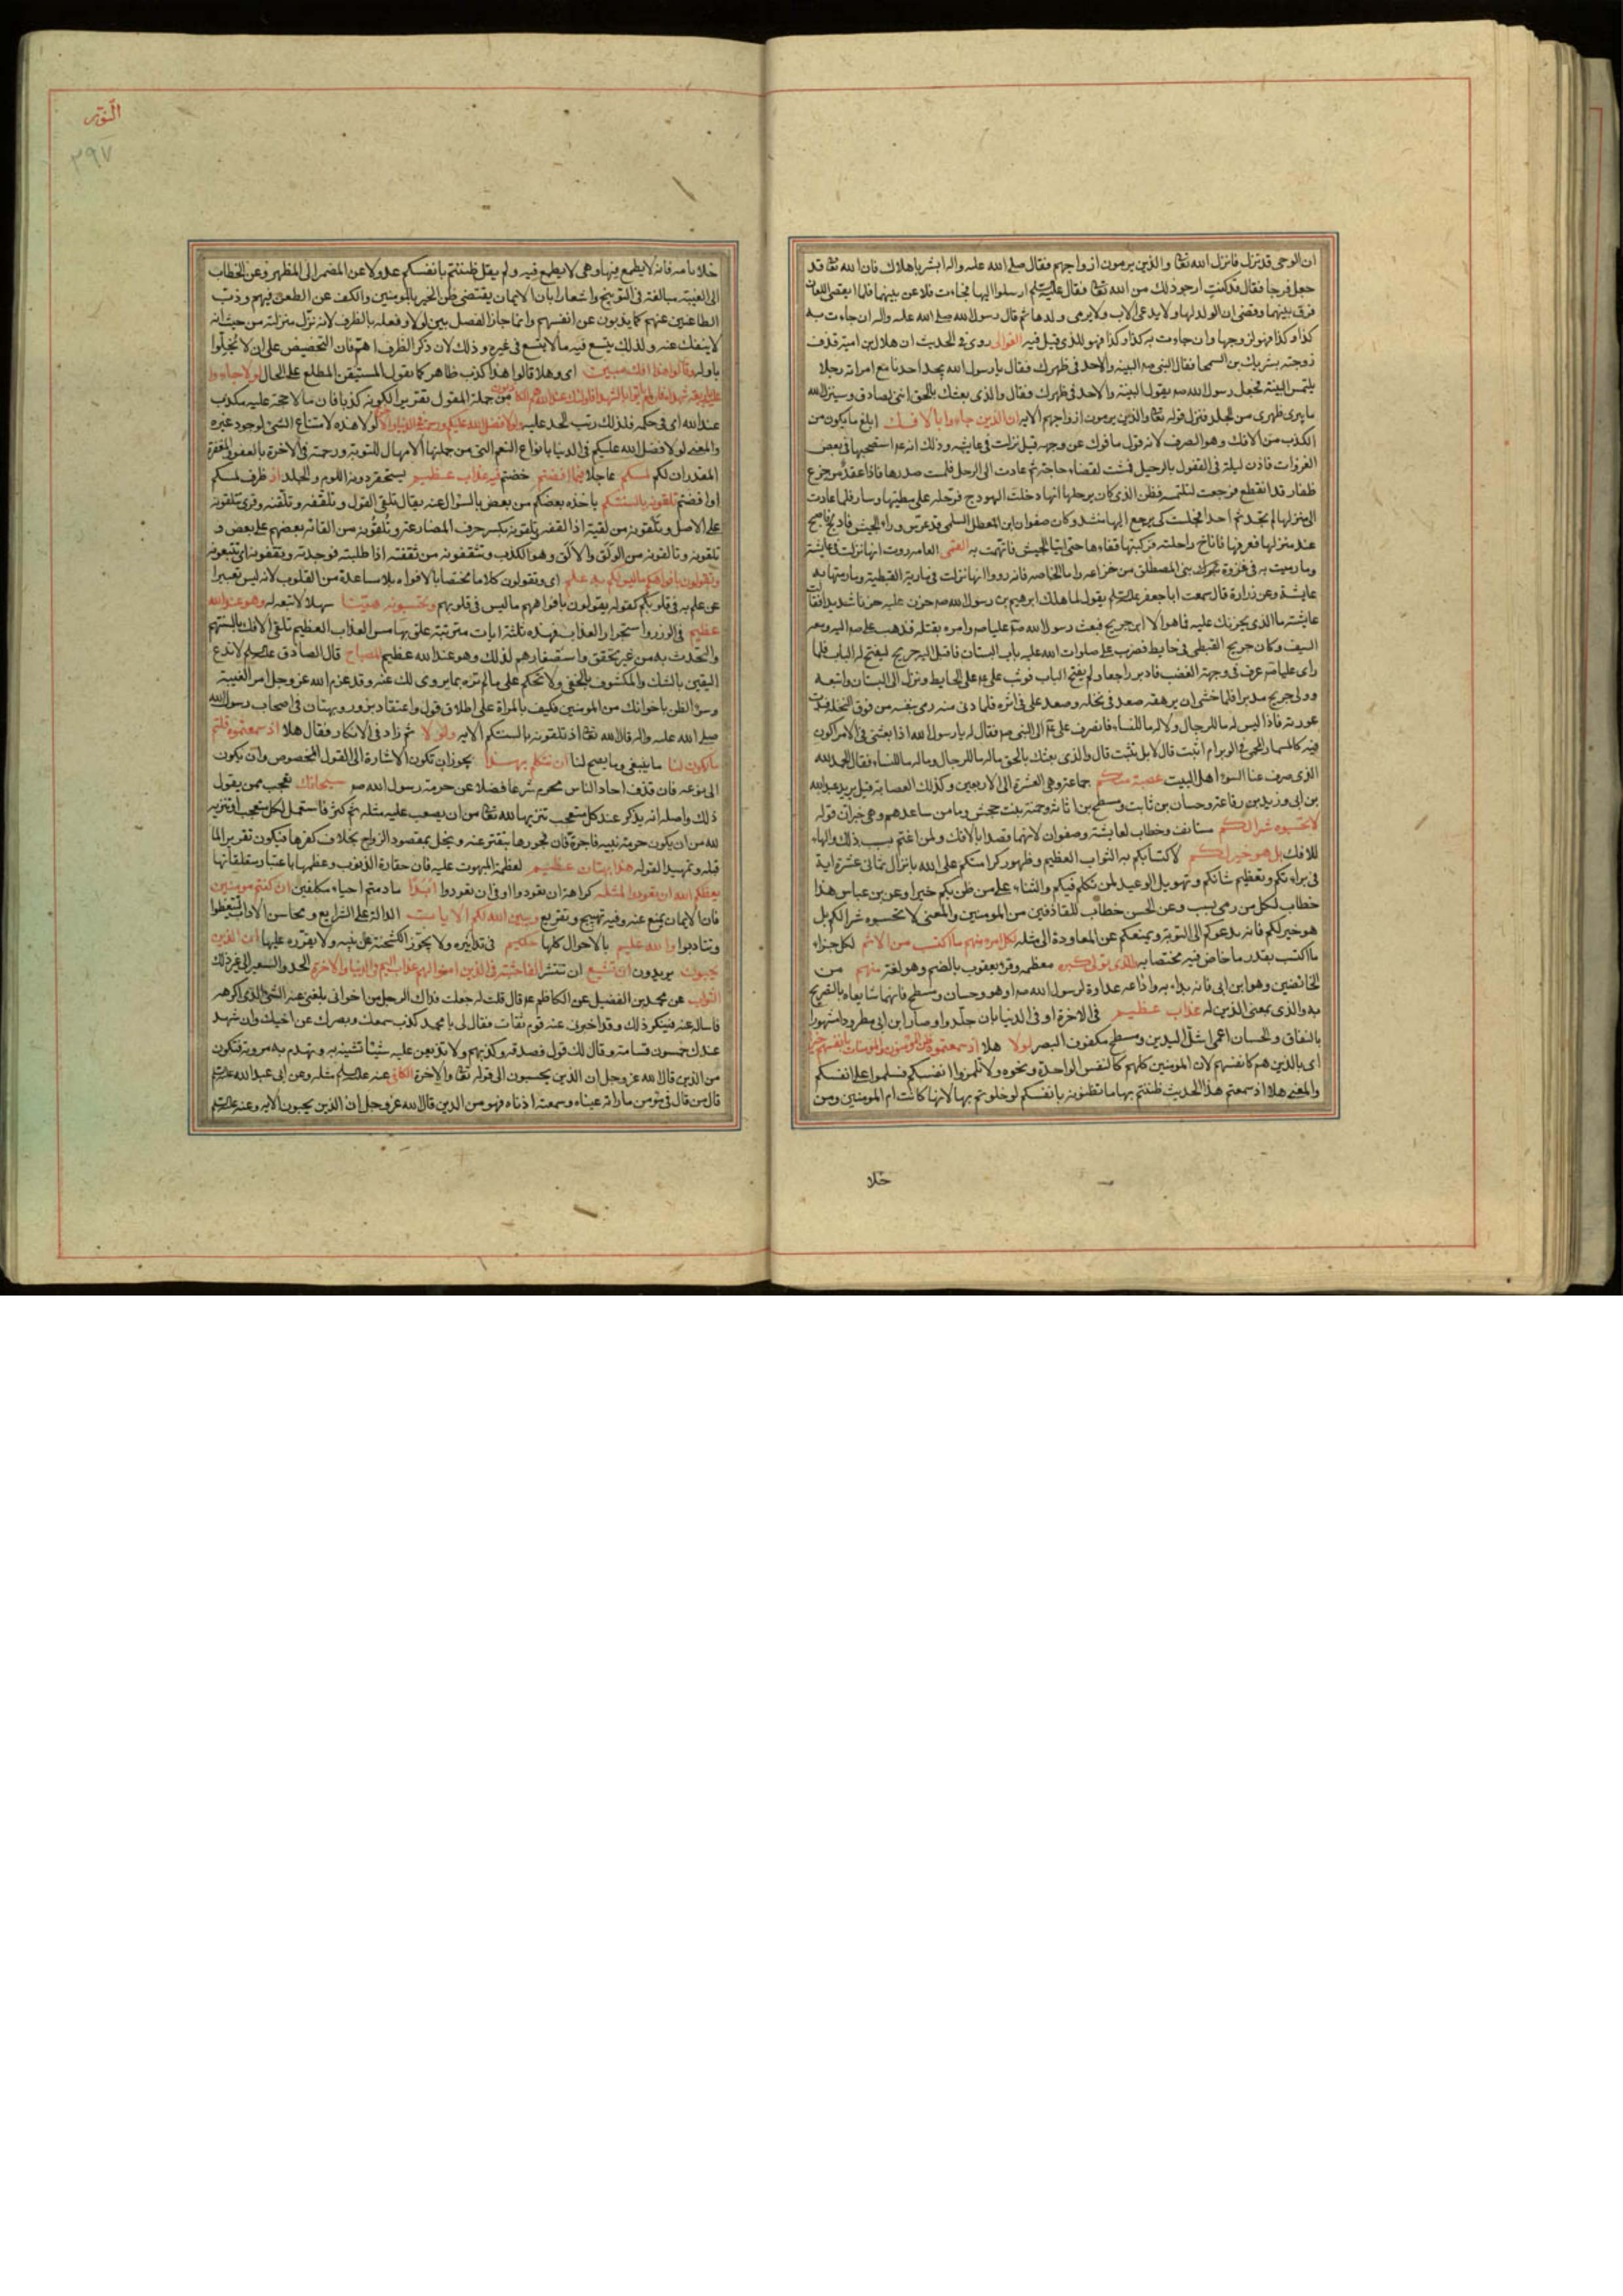 ان الوحی قد تنزل فانزل الله تعا والذین یرمون ازواجهم فقال صلی الله علیه واله ابشر یا هلال فان الله تعا قد
جعل فرجا فقال قد کنت ارجو ذلک من الله تعا فقال علیه السلم ارسلوا الیها فجاءت فلاعن بینهما فلما انقضی اللعان
فرق بینهما وقضی ان الولد لها ولا یدعی لاب ولا یرمی ولدها ثم قال رسول الله صلی الله علیه واله ان جاءت به
کذا وکذا فهو لزوجها وان جاءت به کذا وکذا فهو للذی قیل فیه الغوالی روی فی الحدیث ان هلال بن امیة قذف
زوجته بشریک بن السمحا فقال النبی صه البینه والا حد فی ظهرک فقال یا رسول الله یجد احدنا مع امراته رجلا
یلتمس البینه فجعل رسول الله صه یقول البینه والا حد فی ظهرک فقال والذی بعثک بالحق اننی لصادق وسینزل الله
ما یبری ظهری من الجلد فنزل قوله تعا والذین یرمون ازواجهم الایه ان الذین جاءوا بالافک ابلغ ما یکون من
الکذب من الافک وهو الصرف لانه قول مافوک عن وجهه قیل نزلت فی عایشه وذلک انه عم استصحبها فی بعض
الغزوات فاذن لیلة فی القفول بالرحیل فمشت لقضاء حاجة ثم عادت الی الرحل فلمست صدرها فاذا عقد من جزع
ظفار قد انقطع فرجعت لتلتمسه فظن الذی کان یرحلها انها دخلت الهودج فرحله علی مطیتها وسار فلما عادت
الی منزلها لم تجد ثم احدا فجلست کی یرجع الیها منشد وکان صفوان ابن المعطل السلمی قد عرس وراء الجیش فادلج فاصبح
عند منزلها فعرفها فاناخ راحلته فرکبتها فقادها حتی اتیا الجیش فاتهمت به القمی العامه روت انها نزلت فی عایشة
وما رمیت به فی غزوة بنی المصطلق من خزاعه واما الخاصه فانه رووا انها نزلت فی ماریة القبطیة وما رمتها به
عایشة وعن زرارة قال سمعت ابا جعفر علیه السلم یقول لما هلک ابرهیم بن رسول الله صه حزن علیه حزنا شدیدا فقالت
عایشة ما الذی یحزنک علیه فما هو الا ابن جریح فبعث رسول الله صه علیا صه وامره بقتله فذهب علی صه الیه ومعه
السیف وکان جریح القبطی فی حایط فضرب علی صلوات الله علیه باب البستان فاقبل الیه جریح لیفتح له الباب فلما
رای علیا صه عرف فی وجهة الغضب فادبر راجعا ولم یفتح الباب فوثب علی عم علی الحایط ونزل الی البستان واتبعه
وولی جریح مدبرا فلما خشی ان یرهقه صعد فی نخله وصعد علی فی اثره فلما دنی منه رمی بنفسه من فوق النخله فبدت
عورته فاذا لیس له ما للرجال ولا له ما للنساء فانصرف علی عم الی النبی صه فقال له یا رسول الله اذا بعثنی فی الامر اکون
فیه کالمسمار المحمی فی الوبر ام اثبت قال لا بل تثبت قال والذی بعثک بالحق ماله ما للرجال وماله ما للنساء فقال الحمد لله
الذی صرف عنا السوء اهل البیت عصبة منکم جماعة وهی العشرة الی الاربعین وکذلک العصابة قیل یرید عبد الله
بن ابی وزید بن رفاعة وحسان بن ثابت ومسطح بن اثاثة وحمنة بنت جحش ومن ساعدهم وهی خبر ان قوله
لا تحسبوه شرا لکم مستانف وخطاب لعایشة وصفوان لانهما قصدا بالافک ولمن اغتم بسبب ذلک والهاء
للافک بل هو خیر لکم لاکتسابکم به الثواب العظیم وظهور کرامتکم علی الله بانزال ثمانی عشرة ایة
فی براءتکم وتعظیم شانکم وتهویل الوعید لمن تکلم فیکم والثناء علی من ظن بکم خیرا وعن بن عباس هذا
خطاب لکل من رمی بسب وعن الحسن خطاب للقاذفین من المومنین والمعنی لا تحسبوه شرا لکم بل
هو خیر لکم فانه یدعوکم الی التوبة ویمنعکم عن المعاودة الی مثله لکل امرء منهم ما اکتسب من الاثم لکل جزاء
ما اکتسب بقدر ما خاض فیه مختصا به والذی تولی کبره معظمه وقرء یعقوب بالضم وهو لغة منهم من
الخائضین وهو ابن ابی فانه بداء به واذاعه عداوة لرسول الله صه او هو وحسان ومسطح فانهما شایعاه بالتصریح
به والذی بمعنی الذین له عذاب عظیم فی الاخرة او فی الدنیا بان جلدوا وصار ابن ابی مطرودا مشهورا
بالنفاق والحسان اعمی اشل الیدین ومسطح مکفوف البصر لولا هلا اذ سمعتموه ظن المومنون والمومنات بانفسهم خیرا
ای بالذین هم کانفسهم لان المومنین کلهم کالنفس الواحدة ونحوه ولا تلمزوا انفسکم فسلموا علی انفسکم
والمعنی هلا اذ سمعتم هذا الحدیث ظننتم بها ما تظنونه بانفسکم لو خلوتم بها لانها کانت ام المومنین ومن
خلا
النور
٣٩٧
خلا بامه فانه لا یطمع فیها وهی لا یطمع فیه ولم یقل ظننتم بانفسکم عدولا عن المضمر الی المظهر وعن الخطاب
الی الغیبة مبالغة فی التوبیخ واشعارا بان الایمان یقتضی ظن الخیر بالمومنین والکف عن الطعن فیهم وذب
الطاعنین عنهم کما یذبون عن انفسهم وانما جاز الفصل بین لولا وفعله بالظرف لانه نزل منزلته من حیث انه
لا ینفک عنه ولذلک یتسع فیه ما لا یتسع فی غیره وذلک لان ذکر الظرف اهم فان التحضیض علی ان لا یخلوا
باوله وقالوا هذا افک مبین ای وهلا قالوا هذا کذب ظاهر کما یقول المستیقن المطلع علی الحال لولا جاءوا
علیه باربعة شهداء فاذ لم یاتوا بالشهداء فاولئک عند الله هم الکاذبون من جملة المقول تقریرا لکونه کذبا فان ما لا حجة علیه مکذب
عند الله ای فی حکمه فلذلک رتب الحد علیه ولولا فضل الله علیکم ورحمته فی الدنیا والاخرة لولا هذه لامتناع الشیء لوجود غیره
والمعنی لولا فضل الله علیکم فی الدنیا بانواع النعم التی من جملتها الامهال للتوبة ورحمته فی الاخرة بالعفو والمغفرة
المقدران لکم لمسکم عاجلا فیما افضتم خضتم فیه عذاب عظیم یستحقر دونه اللوم والجلد اذ ظرف لمسکم
او افضتم تلقونه بالسنتکم یاخذه بعضکم من بعض بالسؤال عنه یقال تلقی القول وتلقفه وتلقنه وقری تتلقونه
علی الاصل وتلقونه من لقیه اذا لقفه وتلقونه بکسر حرف المضارعة وتلقونه من القائه بعضهم علی بعض و
تلقونه وتالقونه من الولق والالق وهو الکذب وتثقفونه من ثقفته اذا طلبته فوجدته وتقفونه ای تتبعونه
وتقولون بافواهکم ما لیس لکم به علم ای وتقولون کلاما مختصا بالافواه بلا مساعدة من القلوب لانه لیس تعبیرا
عن علم به فی قلوبکم کقوله یقولون بافواههم ما لیس فی قلوبهم وتحسبونه هینا سهلا لا تبعة له وهو عند الله
عظیم فی الوزر واستجرار العذاب فهذه ثلثة ایات مترتبة علق بها مس العذاب العظیم تلقی الافک بالسنتهم
والتحدث به من غیر تحقق واستصغارهم لذلک وهو عند الله عظیم المصباح قال الصادق علیه السلم لا تدع
الیقین بالشک والمکشوف بالخفی ولا تحکم علی ما لم تره بما یروی لک عنه وقد عزم الله عز وجل امر الغیبة
وسوء الظن باخوانک من المومنین فکیف بالمراة علی اطلاق قول واعتقاد بزور وبهتان فی اصحاب رسول الله
صلی الله علیه واله قال الله تعا اذ تلقونه بالسنتکم الایه ولولا ثم زاد فی الانکار وفقال هلا اذ سمعتموه قلتم
ما یکون لنا ما ینبغی وما یصح لنا ان نتکلم بهذا یجوز ان تکون الاشارة الی القول المخصوص وان یکون
الی نوعه فان قذف احاد الناس محرم شرعا فضلا عن حرمة رسول الله صه سبحانک تعجب ممن یقول
ذلک واصله انه یذکر عند کل متعجب تنزیها لله تعا من ان یصعب علیه مثله ثم کثر فاستعمل لکل متعجب او تنزیه
لله من ان یکون حرمة نبیه فاجرة فان فجورها ینفر عنه ویخل بمقصود الزواج بخلاف کفرها فیکون تقریرا لما
قبله وتمهیدا لقوله هذا بهتان عظیم لعظمة المبهوت علیه فان حقارة الذنوب وعظمها باعتبار متعلقاتها
یعظکم الله ان تعودوا لمثله کراهة ان تعودوا او فی ان تعودوا ابدا ما دمتم احیاء مکلفین ان کنتم مومنین
فان الایمان یمنع عنه وفیه تهییج وتقریع ویبین الله لکم الایات الدالة علی الشرایع ومحاسن الاداب لتتعظوا
وتتادبوا والله علیم بالاحوال کلها حکیم فی تدابیره ولا یجوز الکشخنة علی نبیه ولا یقرره علیها ان الذین
یحبون یریدون ان تشیع ان تنتشر الفاحشة فی الذین امنوا لهم عذاب الیم فی الدنیا والاخرة الحد والسعیر الی غیر ذلک
الثواب عن محمد بن الفضیل عن الکاظم عم قال قلت له جعلت فداک الرجل من اخوانی یبلغنی عنه الشیء الذی اکرهه
فاساله عنه فینکر ذلک وقد اخبرنی عنه قوم ثقات فقال لی یا محمد کذب سمعک وبصرک عن اخیک وان شهد
عندک خمسون قسامة وقال لک قول فصدقه وکذبهم ولا تذیعن علیه شیئا تشینه به وتهدم به مروته فتکون
من الذین قال الله عز وجل ان الذین یحبون الی قوله تعا والاخرة الکافی عنه علیه السلم مثله وعن ابی عبد الله علیه السلم
قال من قال فی مومن ما راته عیناه وسمعته اذناه فهو من الذین قال الله عز وجل ان الذین یحبون الایه وعنه علیه السلم